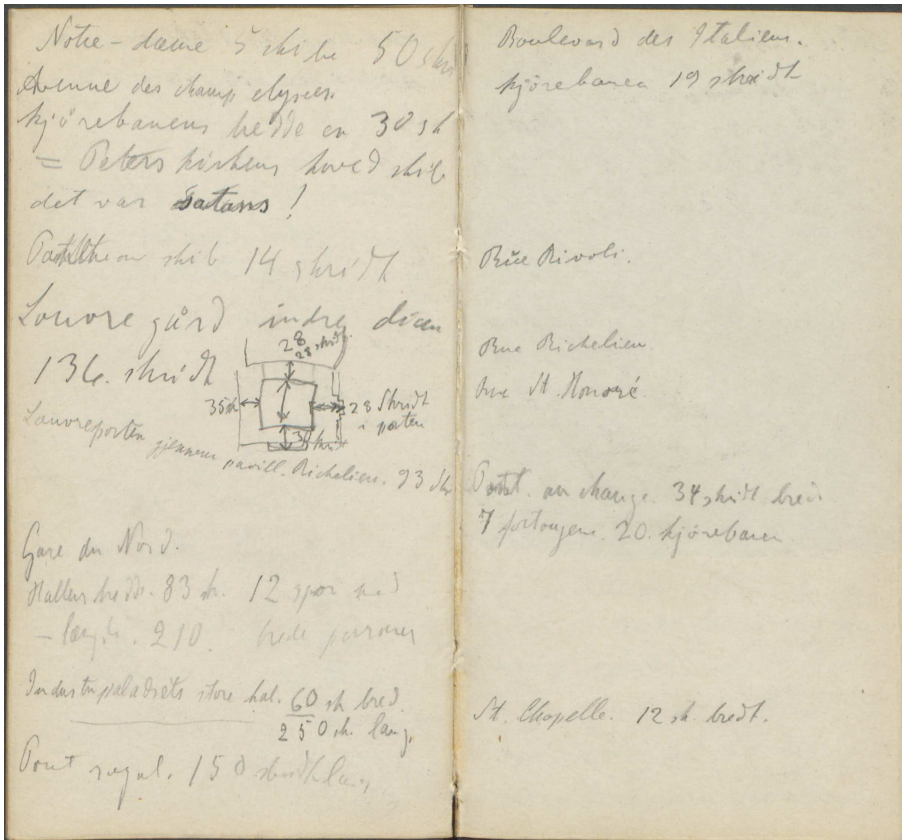 Notre-dame 5 skibe 50 skr
Avenue des champs elysees.
kjörebanens bredde en 30 sk
= Peters kirkens hoved skib
det var Satans!
Pantheon skib 14 skridt
Louvre gård indre diam
136. skridt
28
28 skridt.
35 sk
28 Skridt
i porten
Louvreporten gjennem pavill. Richelieu. 93 skr
Gare du Nord.
Hallens bredde. 83 sk. 12 spor med
- længde. 210. brede perroner
Industripaladsets store hal. 60 sk bred.
250 sk. lang.
Pont royal. 150 skridt lang
Boulevard des Italiens.
kjörebanen 19 skridt
Rue Rivoli.
Rue Richelieu.
rue St. Honoré.
Pont. au change. 34 skridt bred
7 fortougene. 20. kjörebanen
St. Chapelle. 12 sk. bredt.